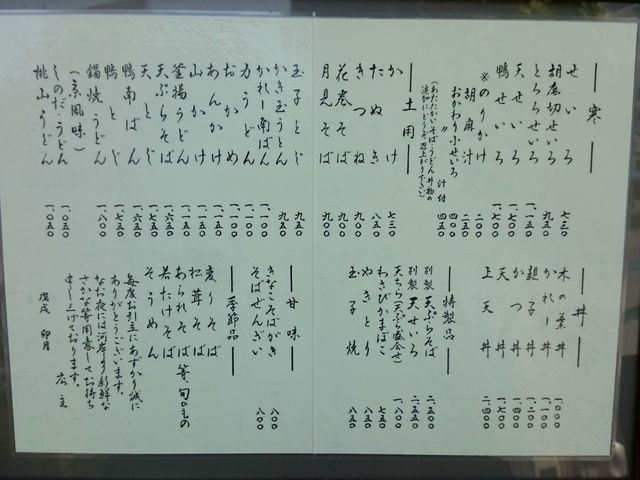 寒
せいろ 七三〇
胡麻切せいろ 九五〇
とろろせいろ
天せいろ 一、五〇〇
鴨せいろ 一、七〇〇
※のりかけ 二〇〇
胡麻汁 二五〇
おかわり小せいろ 四五〇
〃 汁付 五〇〇
(あたたかいそば・うどん丼物の
追加にどうぞ召上がり下さい)
土用
かけ 七三〇
たぬき 八五〇
きつね 九〇〇
花巻そば 九〇〇
月見そば 九〇〇
玉子とじ 九五〇
かき玉うどん 九五〇
かれー南ばん 一、一〇〇
力うどん 一、一〇〇
おかめ 一、一〇〇
あんかけ
山かけ
釜揚うどん
天ぷらそば 一、六五〇
天とじ 一、七五〇
鴨南ばん 一、六五〇
鴨とじ 一、七五〇
鍋焼うどん 一、八〇〇
(京風味)
しのだうどん 一、〇五〇
桃山うどん 一、〇五〇
丼
木の葉丼 一、〇〇〇
かれー丼 一、一〇〇
親子丼 一、二〇〇
かつ丼 一、四〇〇
天丼 一、七〇〇
上天丼 二、四〇〇
特製品
別製 天ぷらそば 二、五〇〇
別製 天せいろ 二、五五〇
天ちら(天ぷら盛合せ) 一、八〇〇
わさびかまぼこ 七五〇
やきとり 八五〇
玉子焼 八五〇
甘味
きなこそばがき 八〇〇
そばぜんざい 八〇〇
季節品
変りそば
松茸そば
あられそば 等、旬のもの
若たけそば
そうめん
毎度お引立にあずかり誠に
ありがとうございます。
なお夜には河岸より新鮮な
さかな等用意してお待ち
申し上げております。
店主
戊戌 卯月